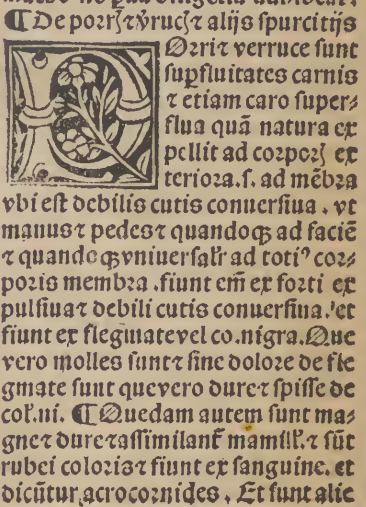 ¶ De porrꝫ ⁊ v̄rucꝭ ⁊ alijs spurcitijs
Orri ⁊ verruce sunt
suꝑfluitates carnis
⁊ etiam caro super⸗
flua quã natura ex
pellit ad corporꝫ ex
teriora.s. ad mẽbra
vbi est debilis cutis conuersiua . vt
manus ⁊ pedes ⁊ quandoqꝫ ad faciẽ
⁊ quandoqꝫ vniuersalr̃ ad toti⁹ cor⸗
poris membra .fiunt em̃ ex forti ex
pulsiua ⁊ debili cutis conuersiua. et
fiunt ex flegmate vel co.nigra. Que
vero molles sunt ⁊ sine dolore de fle
gmate sunt que vero dure ⁊ spisse de
col'.ni. ¶ Quedam autem sunt ma⸗
gne ⁊ dure ⁊ assimilant̃ mamill'. ⁊ sũt
rubei coloris ⁊ fiunt ex sanguine. et
dicũtur acrocornides . Et sunt alie